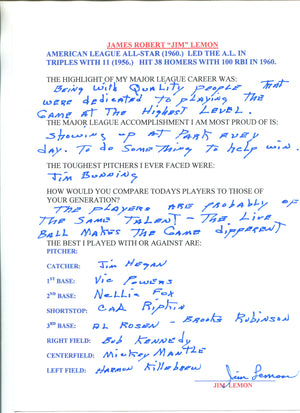 JAMES ROBERT "JIM" LEMON
AMERICAN LEAGUE ALL-STAR (1960.)  LED THE A.L. IN
TRIPLES WITH 11 (1956.)  HIT 38 HOMERS WITH 100 RBI IN 1960.
THE HIGHLIGHT OF MY MAJOR LEAGUE CAREER WAS:
Being with Quality people that
were dedicated to playing the
Game at the Highest Level.
THE MAJOR LEAGUE ACCOMPLISHMENT I AM MOST PROUD OF IS:
Showing up at Park every
day. To do something to help win.
THE TOUGHEST PITCHERS I EVER FACED WERE:
Jim Bunning
HOW WOULD YOU COMPARE TODAYS PLAYERS TO THOSE OF
YOUR GENERATION?
The players are probably of
the same talent - The Live
Ball makes the game different
THE BEST I PLAYED WITH OR AGAINST ARE:
PITCHER:
CATCHER: Jim Hegan
1ST BASE: Vic Powers
2ND BASE: Nellie Fox
SHORTSTOP: Cal Ripkin
3RD BASE: Al Rosen - Brooks Robinson
RIGHT FIELD: Bob Kennedy
CENTERFIELD: Mickey Mantle
LEFT FIELD: Harmon Killebrew
Jim Lemon
JIM LEMON